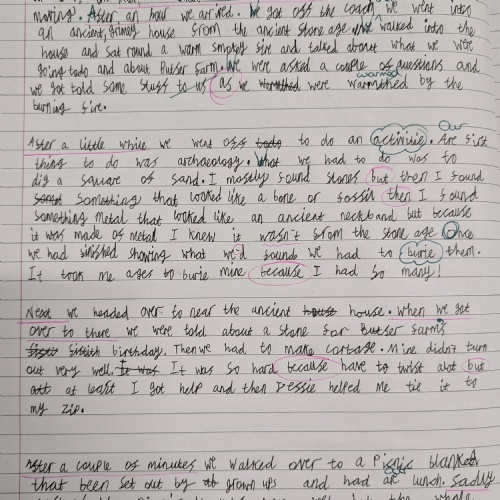 moving. After an hour we arrived. We got off the coach we went into
an ancient, grimey house from the ancient stone age we walked into the
house and sat round a warm smokey fire and talked about what we were
going todo and about Butser Farm. We were asked a couple of questions and
we got told some stuff to us as we warmthed were warmed warmthed by the
burning fire.
After a little while we went off todo to do an activitie. Our Are first
thing to do was archaeology. What we had to do was to
dig a square of sand. I mostly found stones but then I found
something that looked like a bone or fossil then I found
something metal that looked like an ancient neckband but because
it was made of metal I knew it wasn't from the stone age Once
we had finished showing what we'd found we had to burie them.
It took me ages to burie mine because I had so many!
Next we headed over to near the ancient house house. When we got
over to there we were told about a stone for Butser farm's
birthday. Then we had to make cortage. Mine didn't turn
out very well. It was It was so hard because have to twist alot but
att at least I got help and then Jessie helped me tie it to
my zip.
After a couple of minutes we walked over to a picnic blanked
that been set out by grown ups and had are our lunch. Sadly